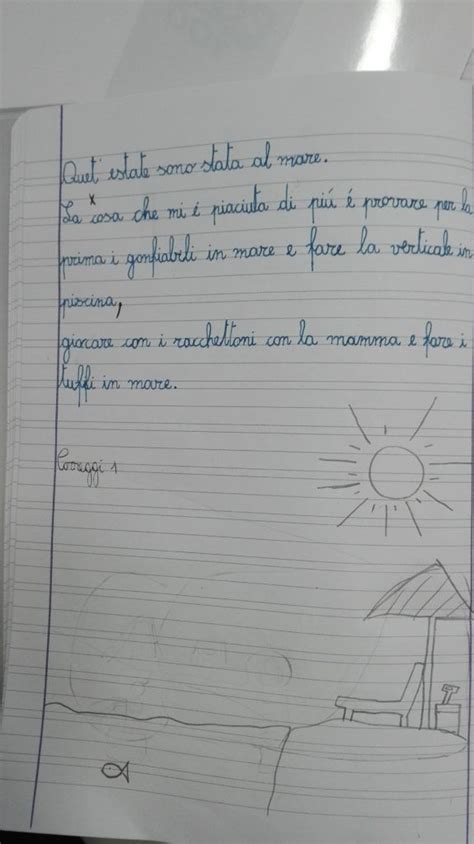 Quet' estate sono stata al mare.
La cosa che mi é piaciuta di piú é provare per la
prima i gonfiabili in mare e fare la verticale in
piscina,
giocare con i racchettoni con la mamma e fare i
tuffi in mare.
Correggi 1